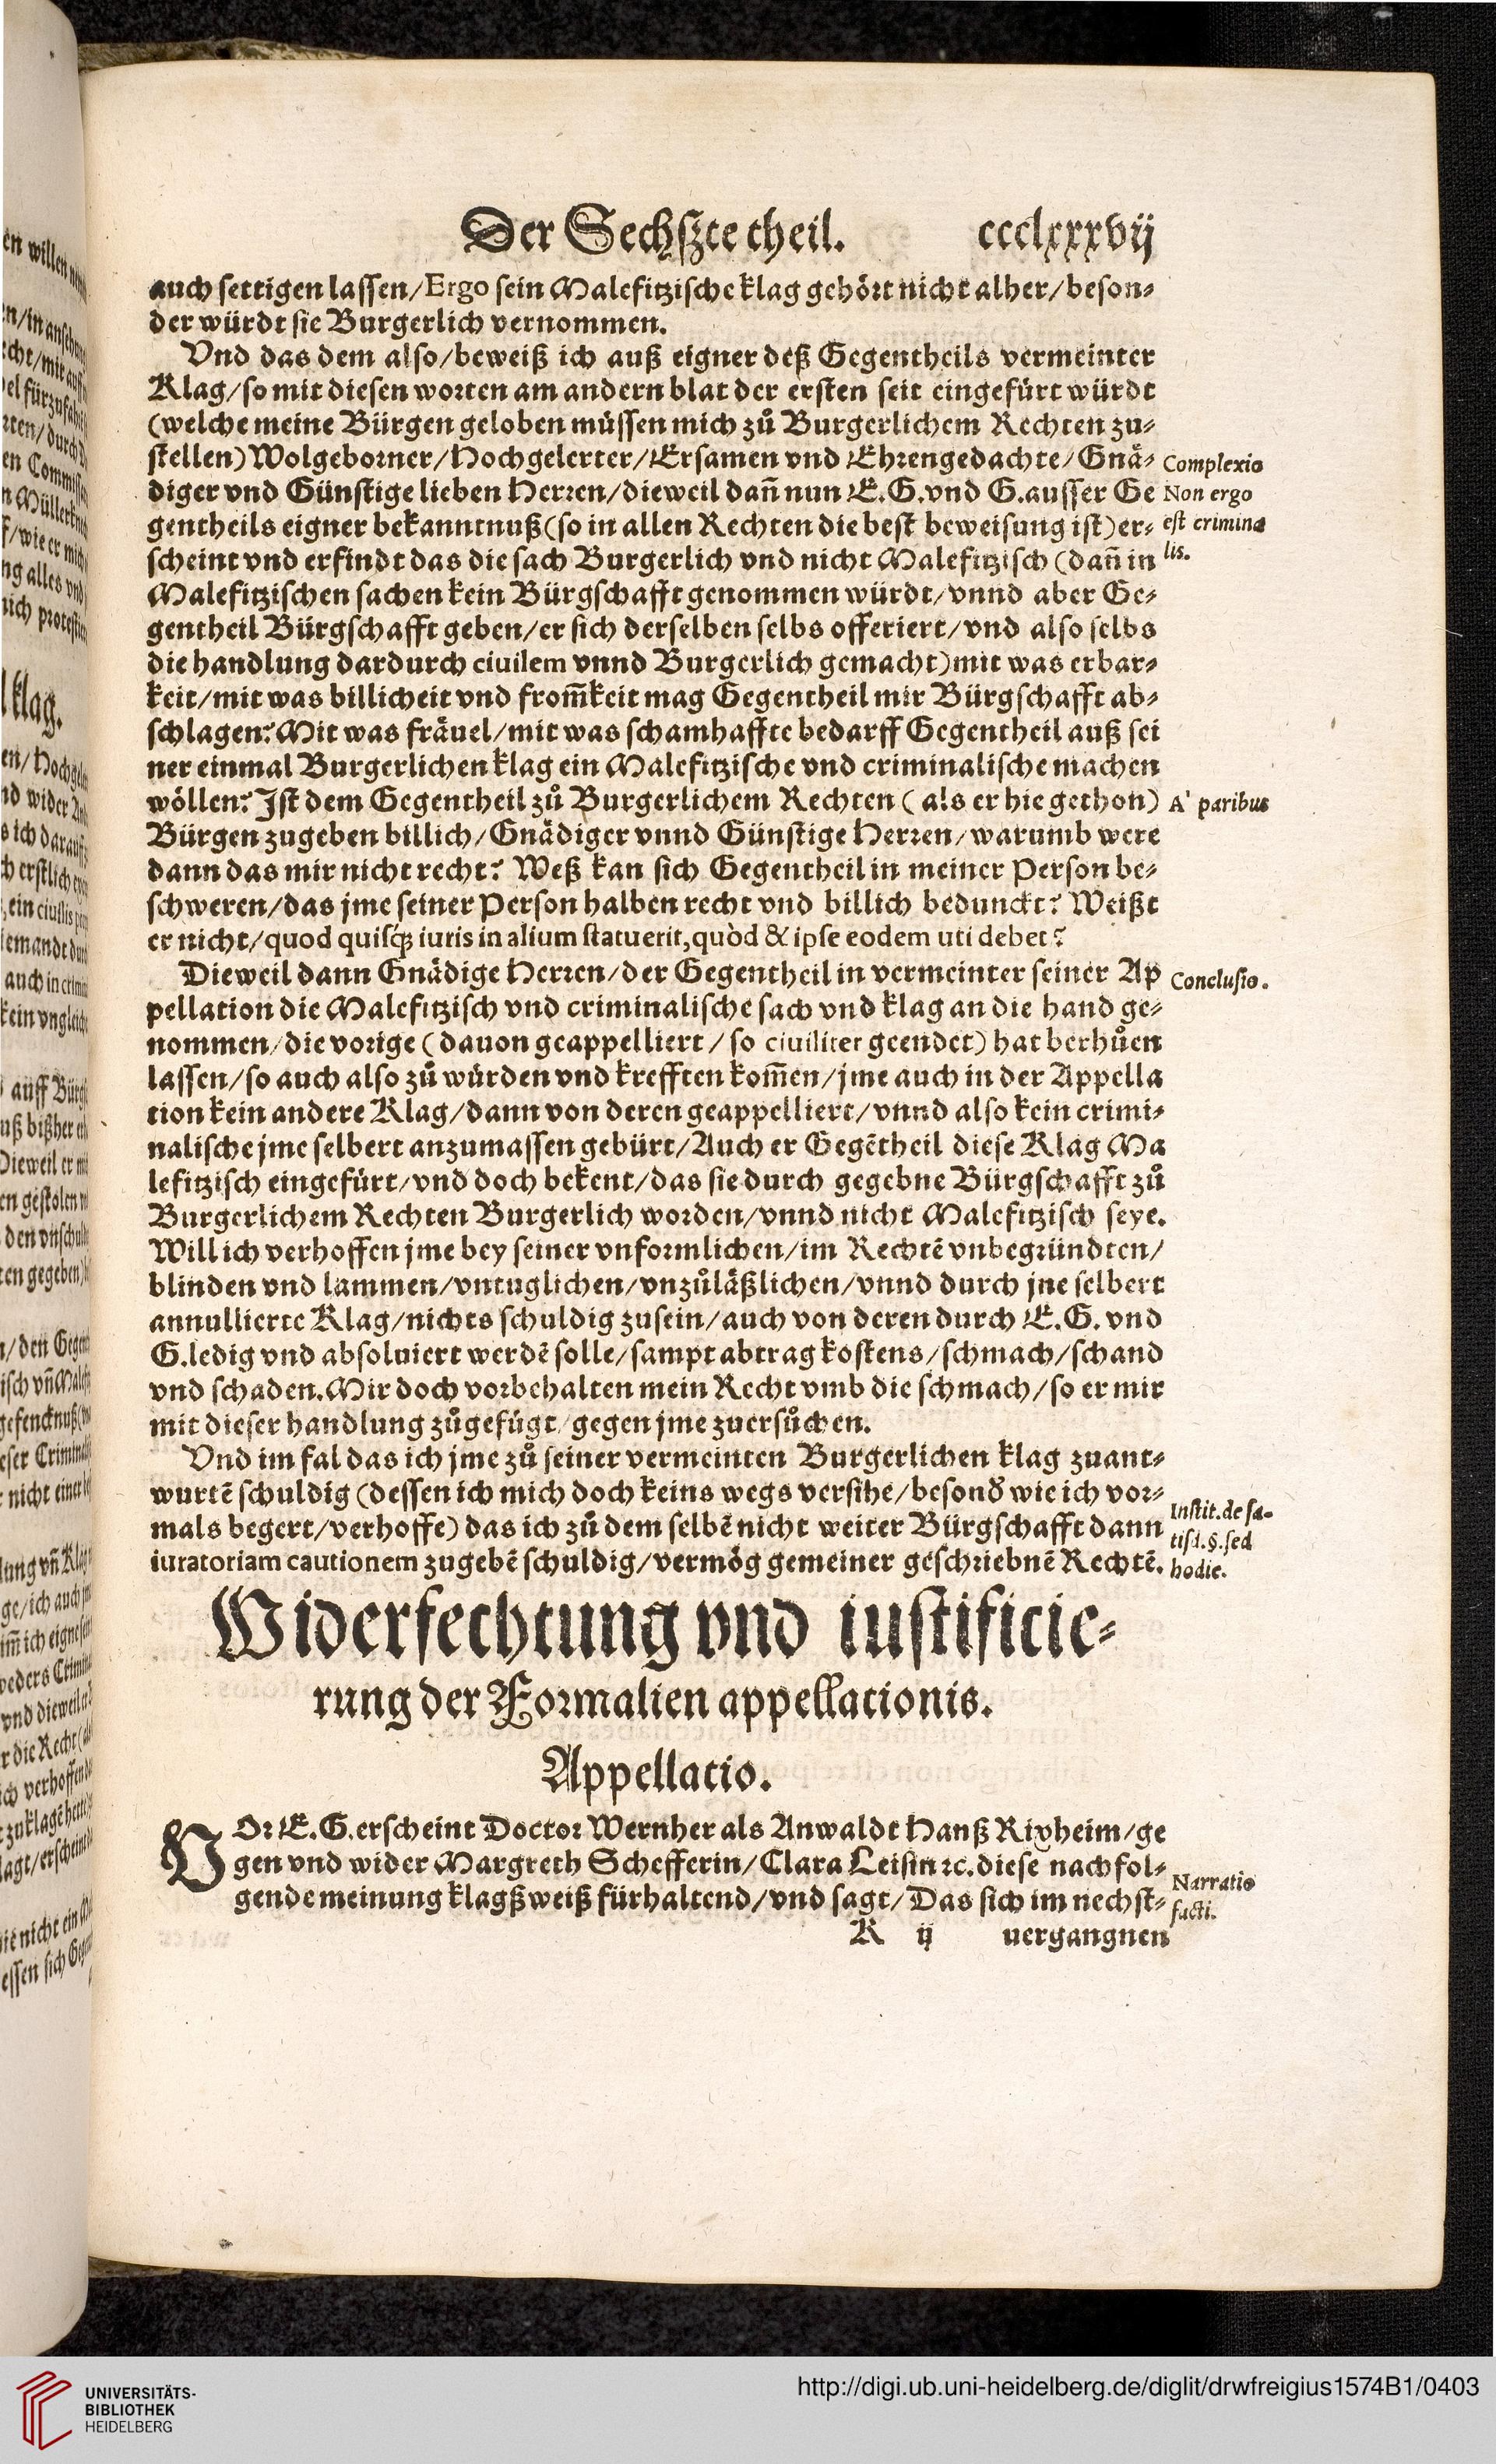 Der Sechßte theil. ccclxxxvij
auch settigen lassen/Ergo sein Malefitzische klag gehört nicht alher/beson⸗
der würdt sie Burgerlich vernommen.
Vnd das dem also/beweiß ich auß eigner deß Gegentheils vermeinter
Klag/so mit diesen worten am andern blat der ersten seit eingefürt würdt
(welche meine Bürgen geloben müssen mich zů Burgerlichem Rechten zu⸗
stellen) Wolgeborner/Hochgelerter/Ersamen vnd Ehrengedachte/Gnä⸗
diger vnd Günstige lieben Herren/dieweil dañ nun E.G.vnd G.ausser Ge
gentheils eigner bekanntnuß(so in allen Rechten die best beweisung ist)er⸗
scheint vnd erfindt das die sach Burgerlich vnd nicht Malefitzisch (dañ in
Malefitzischen sachen kein Bürgschafft genommen würdt/vnnd aber Ge⸗
gentheil Bürgschafft geben/er sich derselben selbs offeriert/vnd also selbs
die handlung dardurch ciuilem vnnd Burgerlich gemacht)mit was erbar⸗
keit/mit was billicheit vnd from̃keit mag Gegentheil mir Bürgschafft ab⸗
schlagen? Mit was fräuel/mit was schamhaffte bedarff Gegentheil auß sei
ner einmal Burgerlichen klag ein Malefitzische vnd criminalische machen
wöllen? Ist dem Gegentheil zů Burgerlichem Rechten ( als er hie gethon)
Bürgen zugeben billich/Gnädiger vnnd Günstige Herren/warumb were
dann das mir nicht recht? Weß kan sich Gegentheil in meiner Person be⸗
schweren/das jme seiner Person halben recht vnd billich bedunckt? Weißt
er nicht/quod quisq́; iuris in alium statuerit, quòd & ipse eodem uti debet?
Dieweil dann Gnädige Herren/der Gegentheil in vermeinter seiner Ap
pellation die Malefitzisch vnd criminalische sach vnd klag an die hand ge⸗
nommen/die vorige (dauon geappelliert/so ciuiliter geendet) hat berhůen
lassen/so auch also zů würden vnd krefften kom̃en/jme auch in der Appella
tion kein andere Klag/dann von deren geappelliert/vnnd also kein crimi⸗
nalische jme selbert anzumassen gebürt/Auch er Gegẽtheil diese Klag Ma
lefitzisch eingefürt/vnd doch bekent/das sie durch gegebne Bürgschafft zů
Burgerlichem Rechten Burgerlich worden/vnnd nicht Malefitzisch seye.
Will ich verhoffen jme bey seiner vnformlichen/im Rechtẽ vnbegründten/
blinden vnd lammen/vntuglichen/vnzůläßlichen/vnnd durch jne selbert
annullierte Klag/nichts schuldig zusein/auch von deren durch E.G. vnd
G.ledig vnd absoluiert werdẽ solle/sampt abtrag kostens/schmach/schand
vnd schaden. Mir doch vorbehalten mein Recht vmb die schmach/so er mir
mit dieser handlung zůgefügt/gegen jme zuersůchen.
Vnd im fal das ich jme zů seiner vermeinten Burgerlichen klag zuant⸗
wurtẽ schuldig (dessen ich mich doch keins wegs versihe/besond̕ wie ich vor⸗
mals begert/verhoffe) das ich zů dem selbẽ nicht weiter Bürgschafft dann
iuratoriam cautionem zugebẽ schuldig/vermög gemeiner geschriebnẽ Rechtẽ.
Complexio
Non ergo
est crimina
lis.
A' paribus
Conclusio.
Instit. de sa⸗
tisd. §. sed
hodie.
Widerfechtung vnd iustificie⸗
rung der Formalien appellationis.
Appellatio.
VOr E.G.erscheint Doctor Wernher als Anwaldt Hanß Rixheim/ge
gen vnd wider Margreth Schefferin/Clara Leisin ꝛc. diese nachfol⸗
gende meinung klagßweiß fürhaltend/vnd sagt/Das sich im nechst⸗
Narratio
facti.
K ij uergangnen
UNIVERSITÄTS-
BIBLIOTHEK
HEIDELBERG
http://digi.ub.uni-heidelberg.de/diglit/drwfreigius1574B1/0403